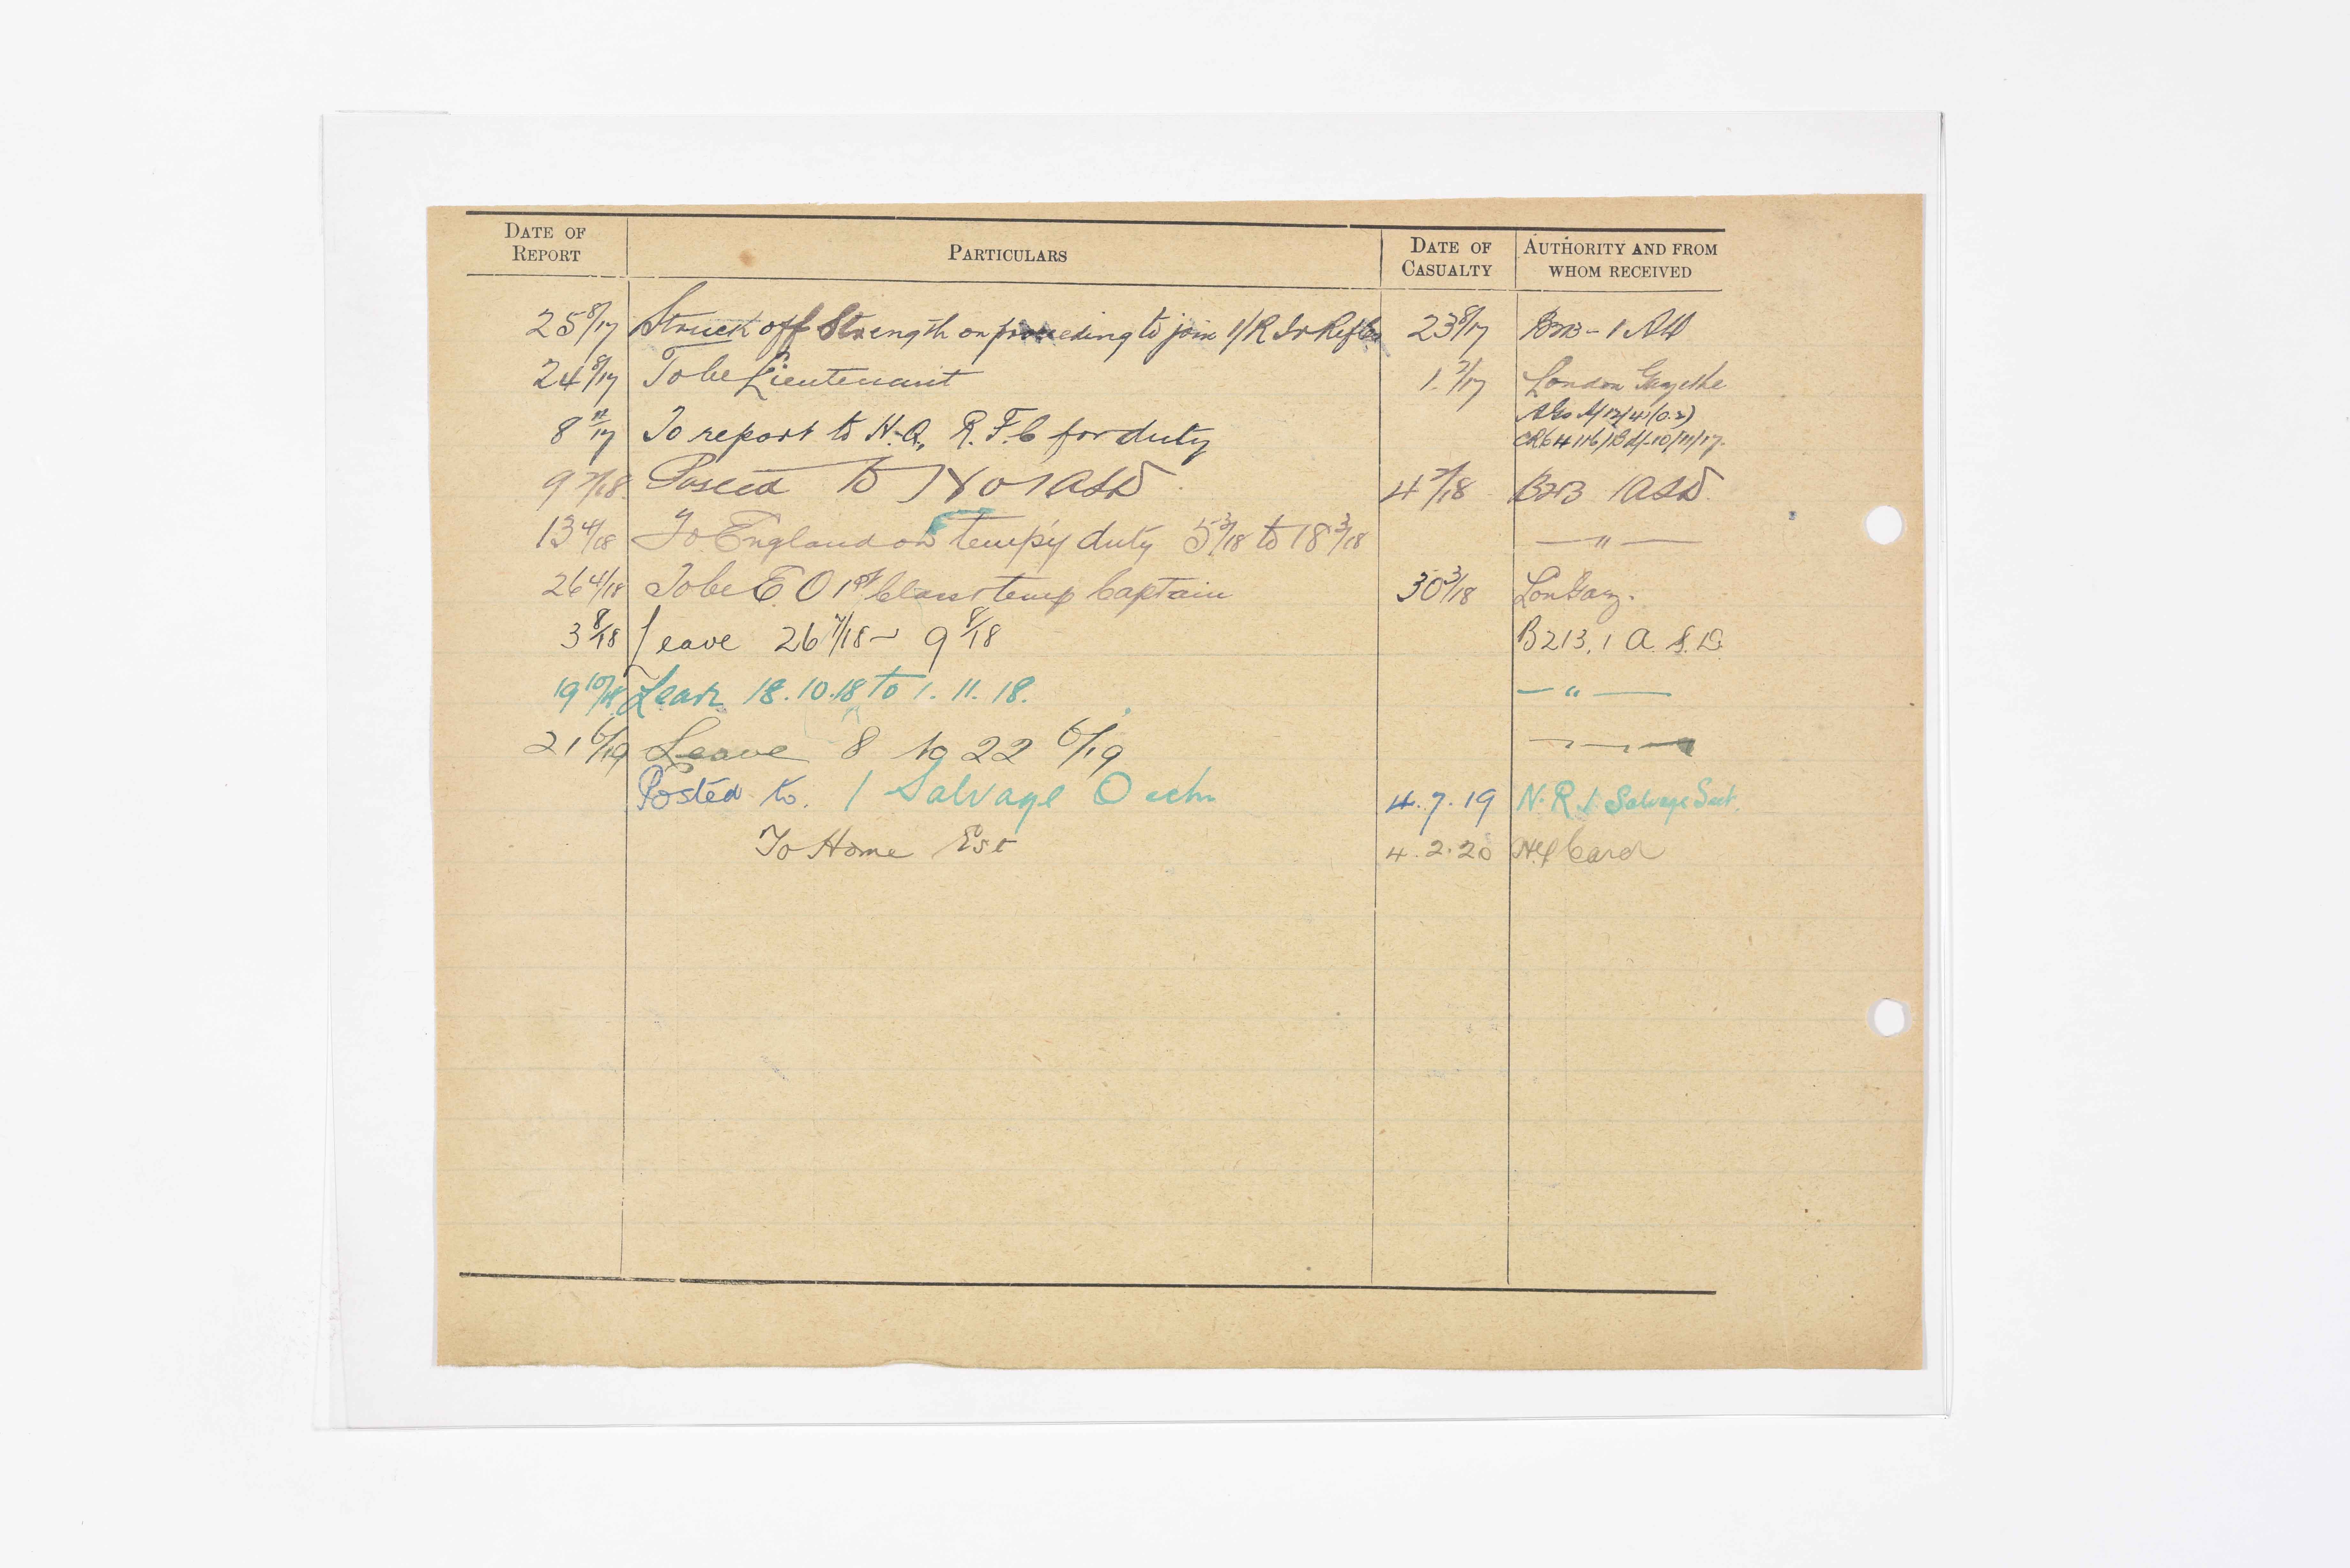 DATE OF REPORT PARTICULARS DATE OF CASUALTY AUTHORITY AND FROM WHOM RECEIVED
25 8/17 Struck off Strength on proceeding to join 1/R Ir Rifles 23 8/17 B213 - 1
24 8/17 To be Lieutenant 1. 7/17 London Gazette
8 11/17 To report to H.Q. R.F.C for duty
9 2/18 Posted to No 1 ASD 4 2/18 B213 1 ASD.
13 4/18 To England on temp'y duty 5 3/18 to 18 3/18 — " —
26 4/18 To be E O 1st Class & temp Captain 30 3/18 Lon Gaz.
3 8/18 Leave 26 7/18 - 9 8/18 B213. 1 A. S. D.
19 10/18 Leave 18.10.18 to 1. 11. 18. — " —
21 6/19 Leave 8 to 22 6/19
Posted to. 1 Salvage Sectn 4. 7. 19 N. R 1 Salvage Sect.
To Home Est 4. 2. 20 Card